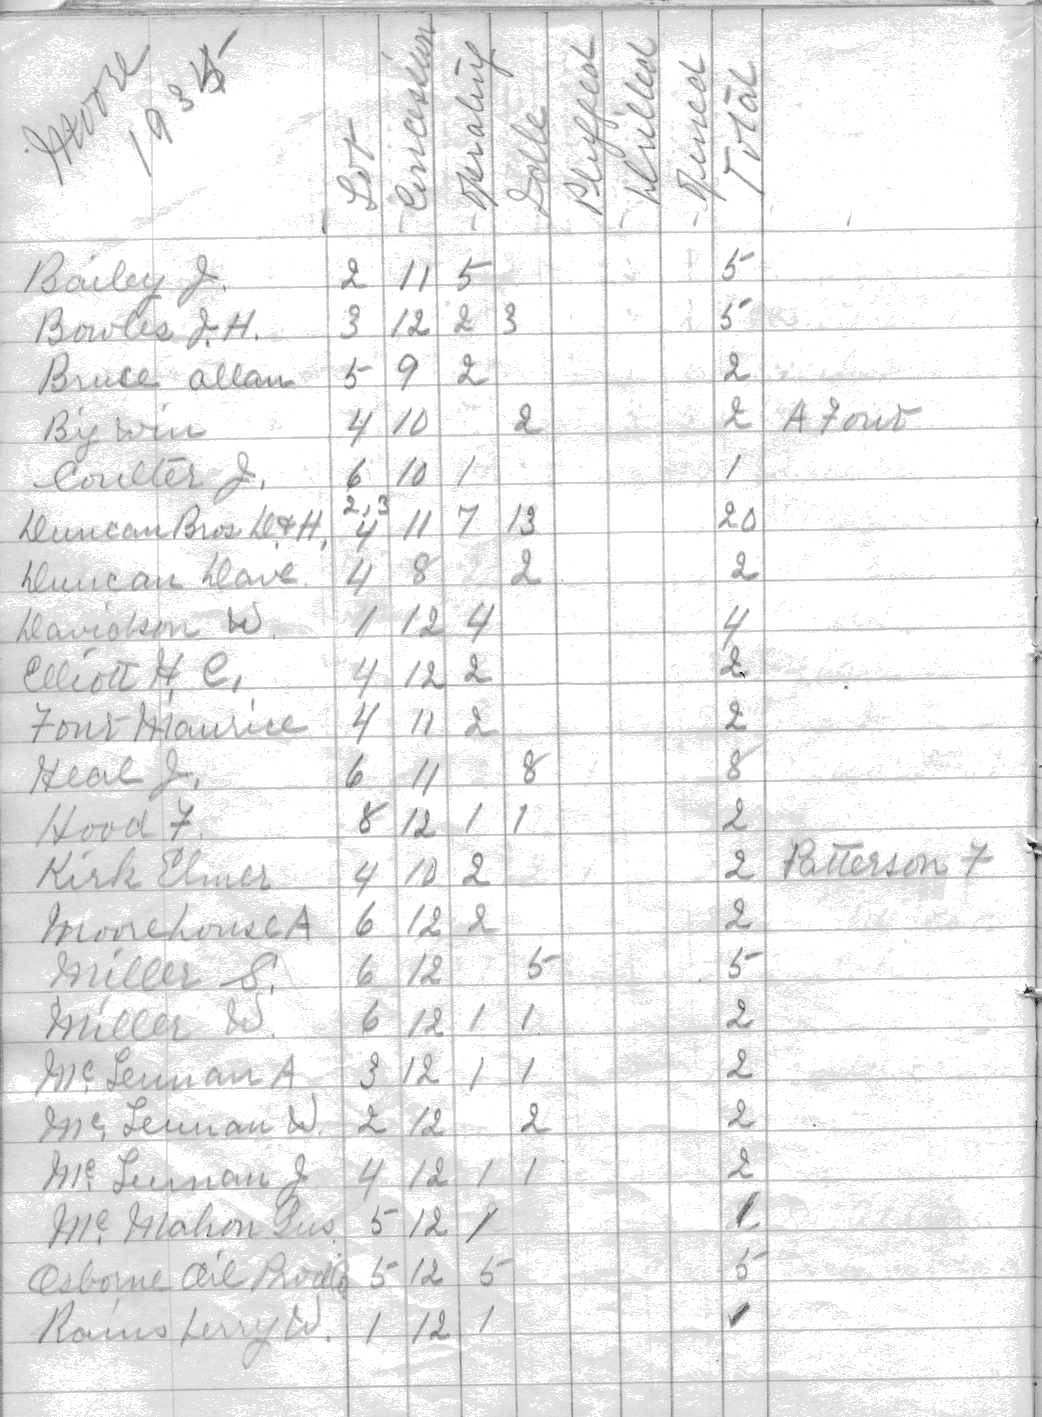 Moore
1935
Lot Concession Operating Idle Plugged Drilled Opened Total
Bailey J. 2 11 5 5
Bowles J. H. 3 12 2 3 5
Bruce Allan 5 9 2 2
By win 4 10 2 2 A Four
Coulter J. 6 10 1 1
Duncan Bros D. & H. 2,3 4 11 7 13 20
Duncan Dave 4 8 2 2
Davidson W. 1 12 4 4
Elliott H. C. 4 12 2 2
Four Maurice 4 11 2 2
Heal J. 6 11 8 8
Hood F. 8 12 1 1 2
Kirk Elmer 4 10 2 2 Patterson F
Moorehouse A 6 12 2 2
Miller S. 6 12 5 5
Miller W. 6 12 1 1 2
Mc Lennan A 3 12 1 1 2
Mc Lennan W. 2 12 2 2
Mc Lennan J 4 12 1 1 2
Mc Mahon Gus. 5 12 1 1
Osborne Oil 5 12 5 5
Rains Perry W. 1 12 1 1